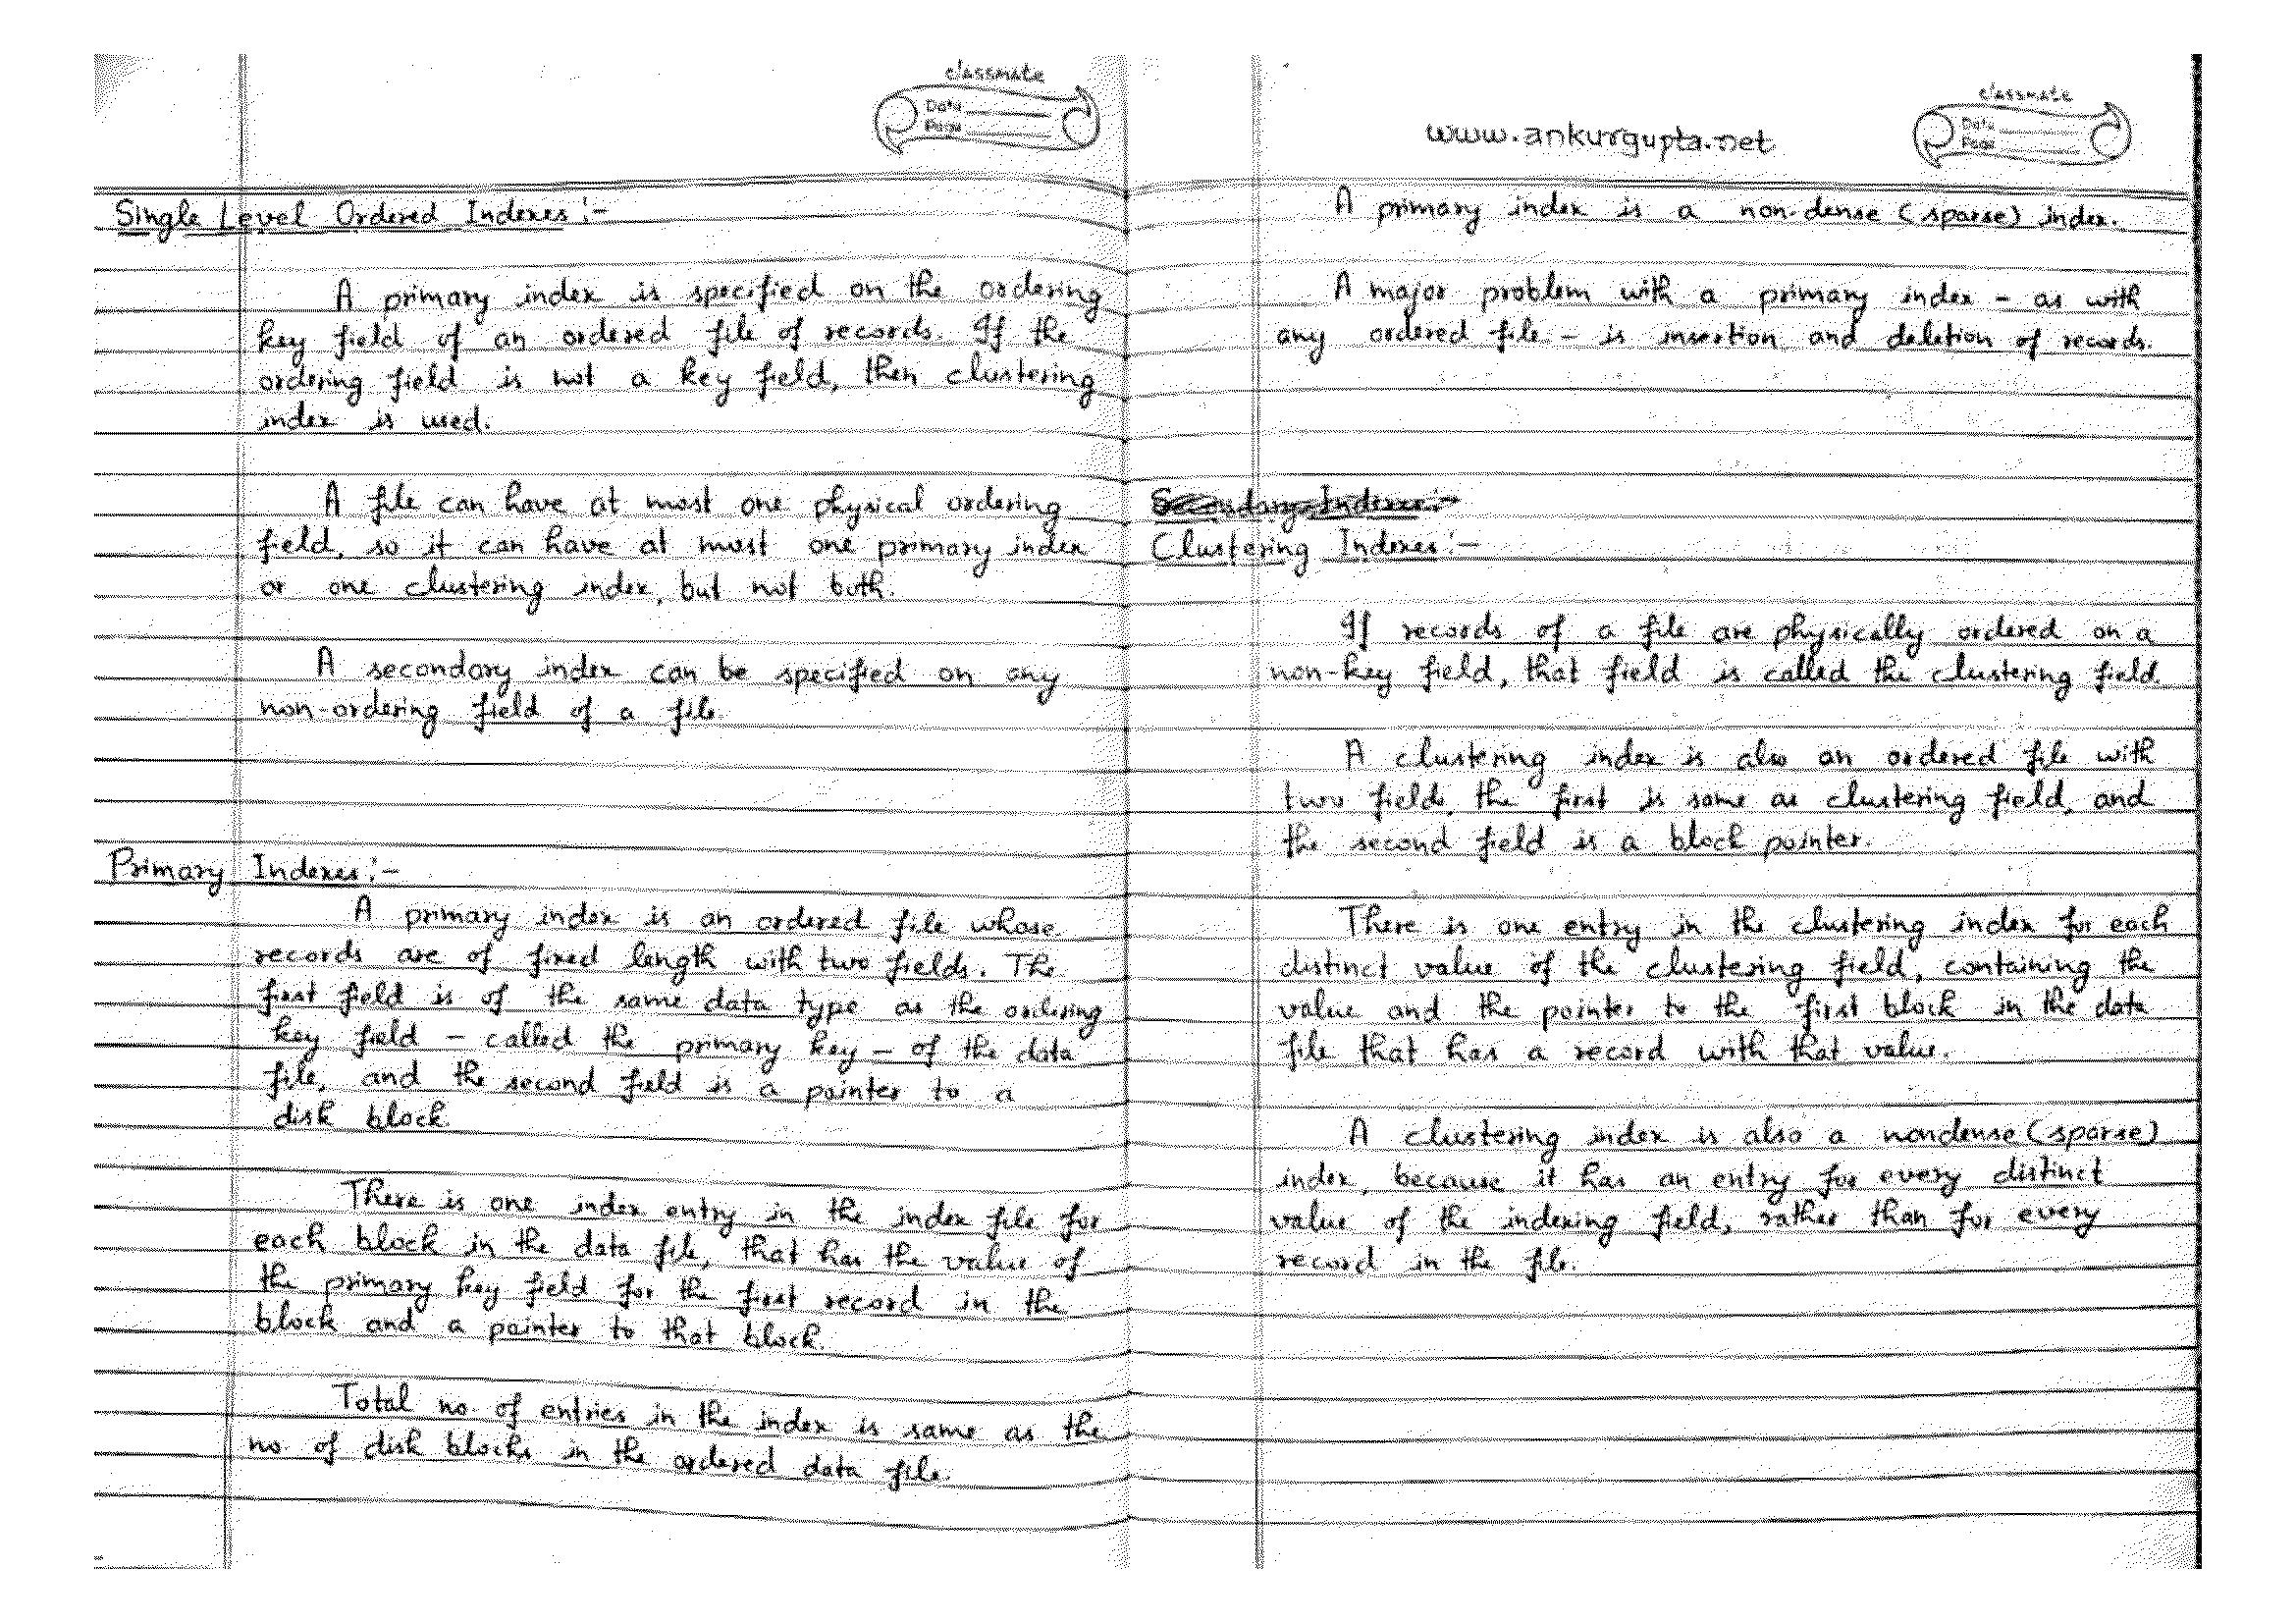 classmate
Date
Page
Single Level Ordered Indexes :-
A primary index is specified on the ordering
key field of an ordered file of records. If the
ordering field is not a key field, then clustering
index is used.
A file can have at most one physical ordering
field, so it can have at most one primary index
or one clustering index, but not both.
A secondary index can be specified on any
non-ordering field of a file.
Primary Indexes :-
A primary index is an ordered file whose
records are of fixed length with two fields. The
first field is of the same data type as the ordering
key field - called the primary key - of the data
file, and the second field is a pointer to a
disk block.
There is one index entry in the index file for
each block in the data file, that has the value of
the primary key field for the first record in the
block and a pointer to that block.
Total no. of entries in the index is same as the
no. of disk blocks in the ordered data file.
classmate
Date
Page
www.ankurgupta.net
A primary index is a non-dense (sparse) index.
A major problem with a primary index - as with
any ordered file - is insertion and deletion of records.
Secondary Indexes :-
Clustering Indexes :-
If records of a file are physically ordered on a
non-key field, that field is called the clustering field.
A clustering index is also an ordered file with
two fields, the first is same as clustering field, and
the second field is a block pointer.
There is one entry in the clustering index for each
distinct value of the clustering field, containing the
value and the pointer to the first block in the data
file that has a record with that value.
A clustering index is also a nondense (sparse)
index, because it has an entry for every distinct
value of the indexing field, rather than for every
record in the file.